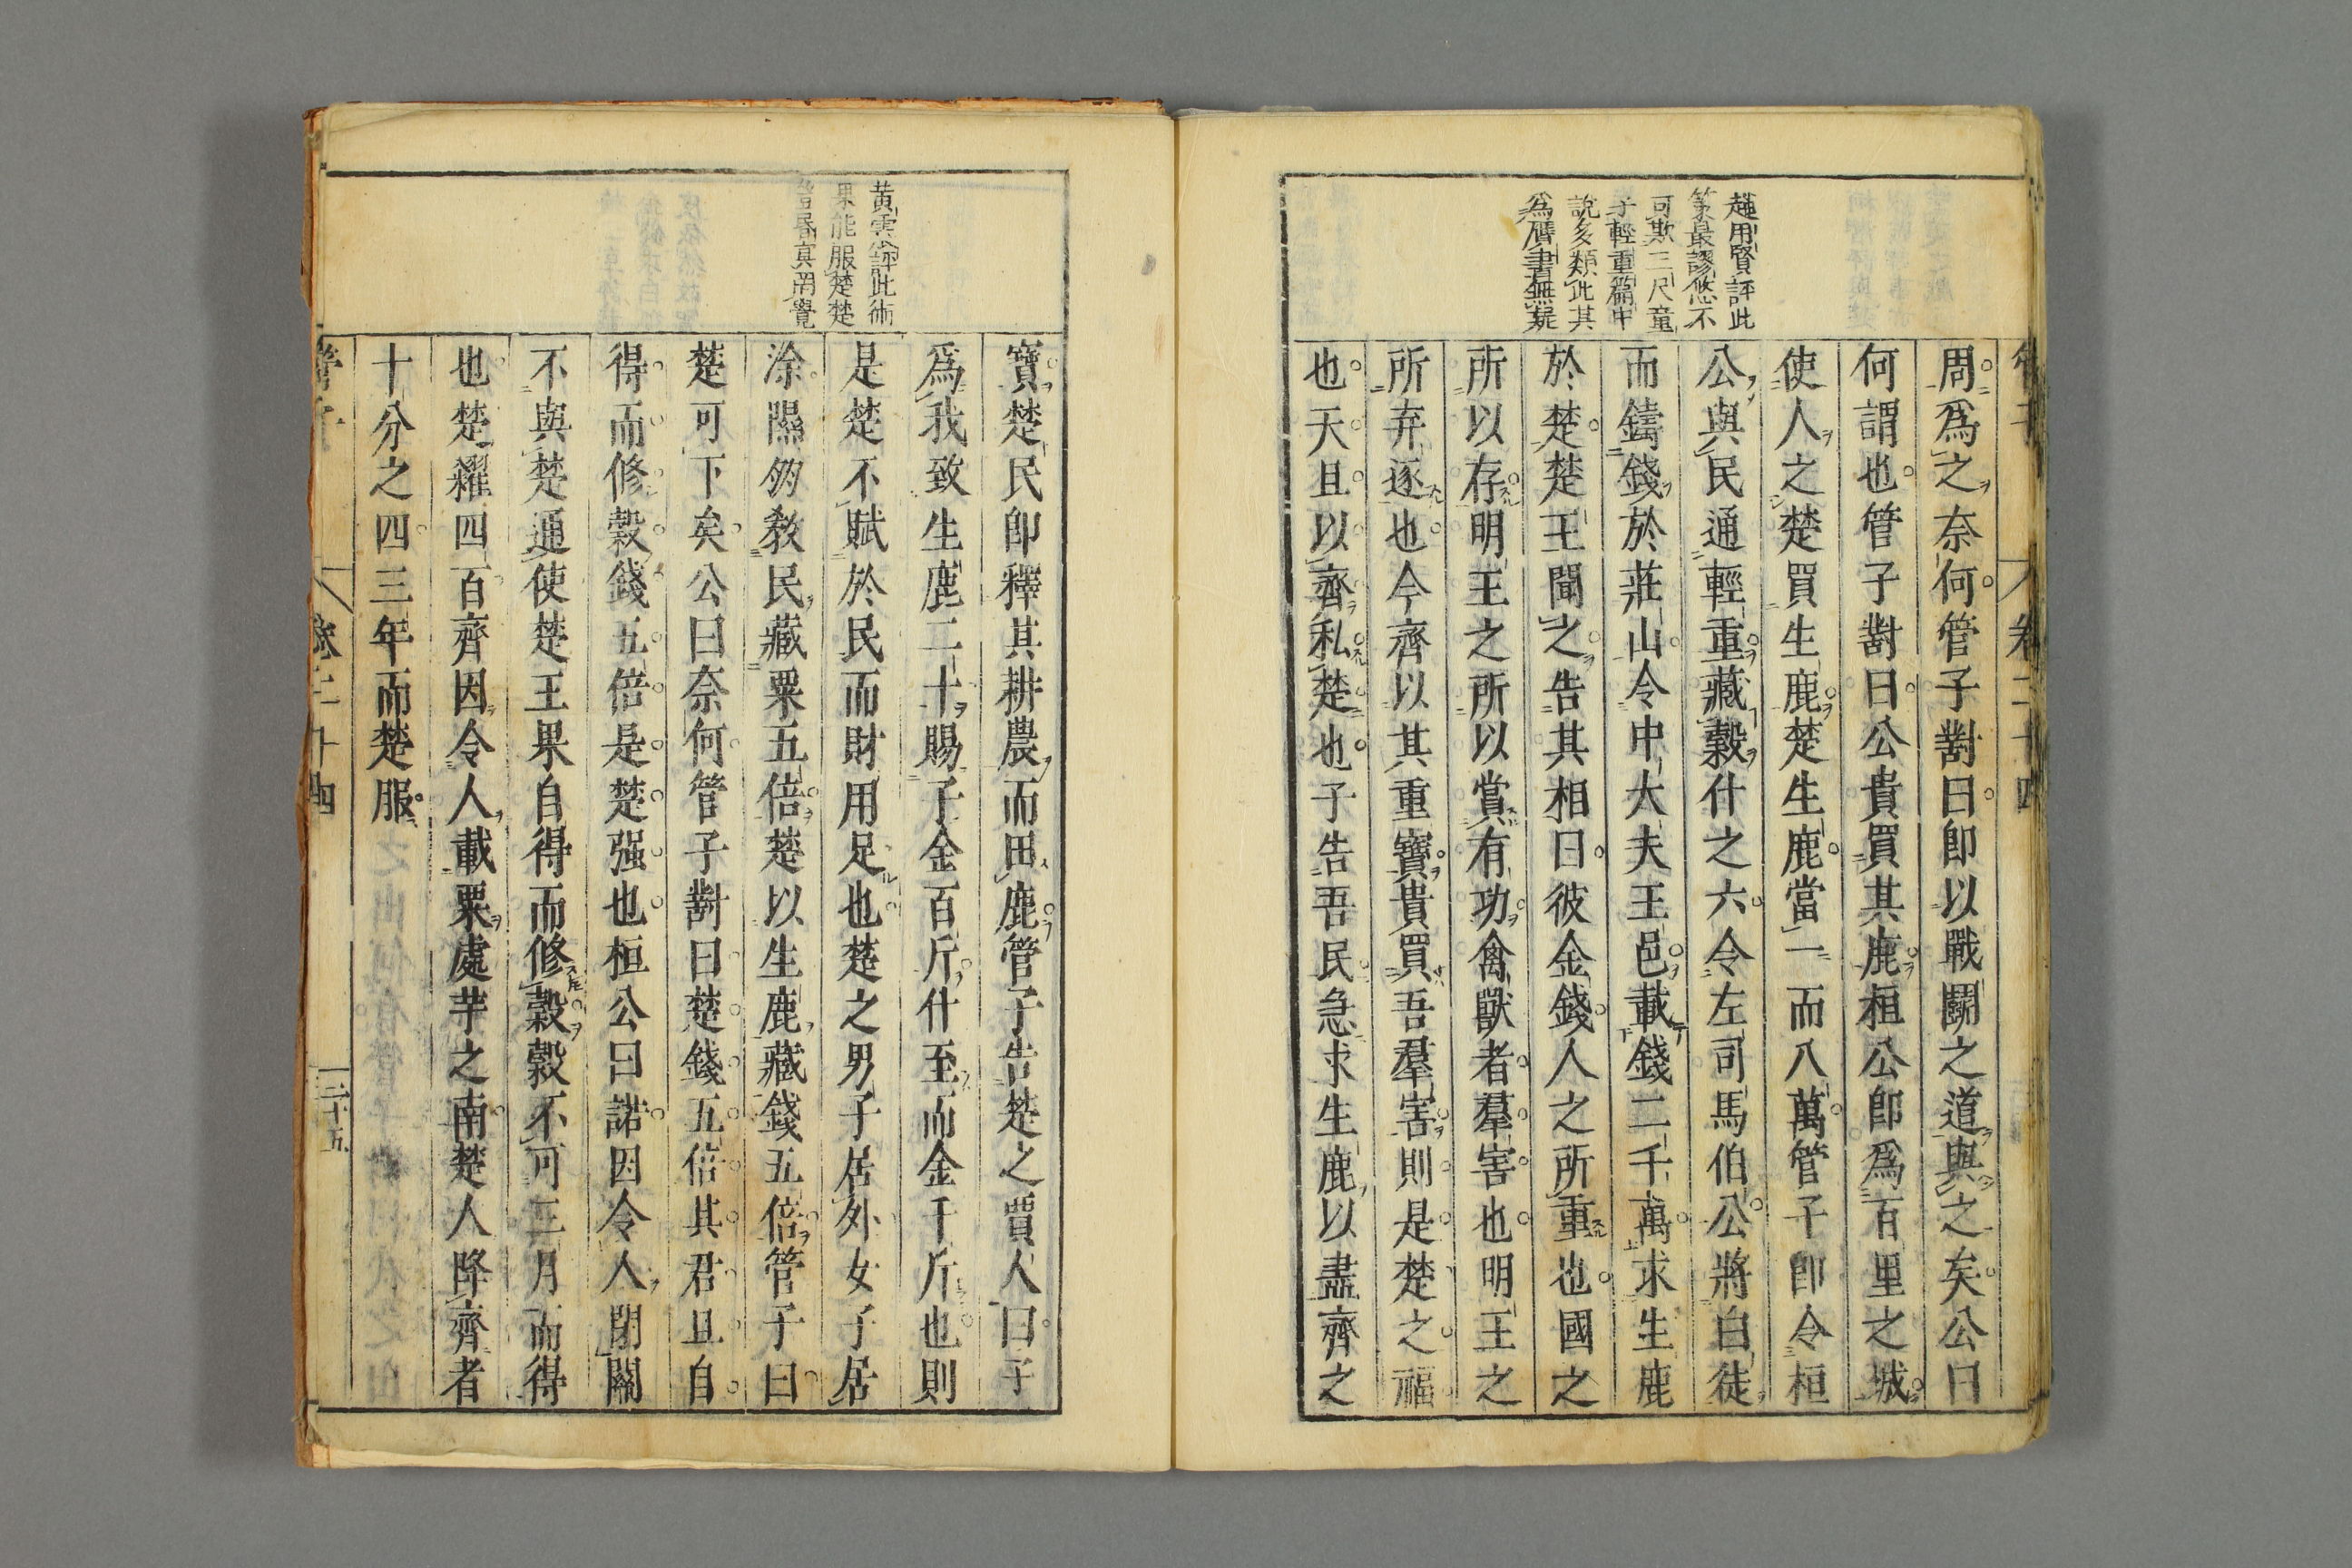 管子
卷二十四
趙用賢評此
筴最謬悠不
可欺三尺童
子輕重篇中
說多類此其
為贋書無疑
周爲之奈何管子對曰卽以戰鬭之道與之矣公曰
何謂也管子對曰公貴買其鹿桓公卽爲百里之城
使人之楚買生鹿楚生鹿當一而八萬管子卽令桓
公與民通輕重藏穀什之六令左司馬伯公將白徒
而鑄錢於莊山令中大夫王邑載錢二千萬求生鹿
於楚楚王聞之告其相曰彼金錢人之所重也國之
所以存明王之所以賞有功禽獸者羣害也明王之
所弃逐也今齊以其重寶貴買吾羣害則是楚之福
也天且以齊私楚也子告吾民急求生鹿以盡齊之
黃震評此術
果能服楚楚
皆昏真罔覺
寶楚民卽釋其耕農而田鹿管子告楚之賈人曰子
爲我致生鹿二十賜子金百斤什至而金千斤也則
是楚不賦於民而財用足也楚之男子居外女子居
涂隰朋教民藏粟五倍楚以生鹿藏錢五倍管子曰
楚可下矣公曰奈何管子對曰楚錢五倍其君且自
得而修穀錢五倍是楚强也桓公曰諾因令人閉關
不與楚通使楚王果自得而修穀穀不可三月而得
也楚糴四百齊因令人載粟處芊之南楚人降齊者
十分之四三年而楚服
管子
卷二十四
二十五